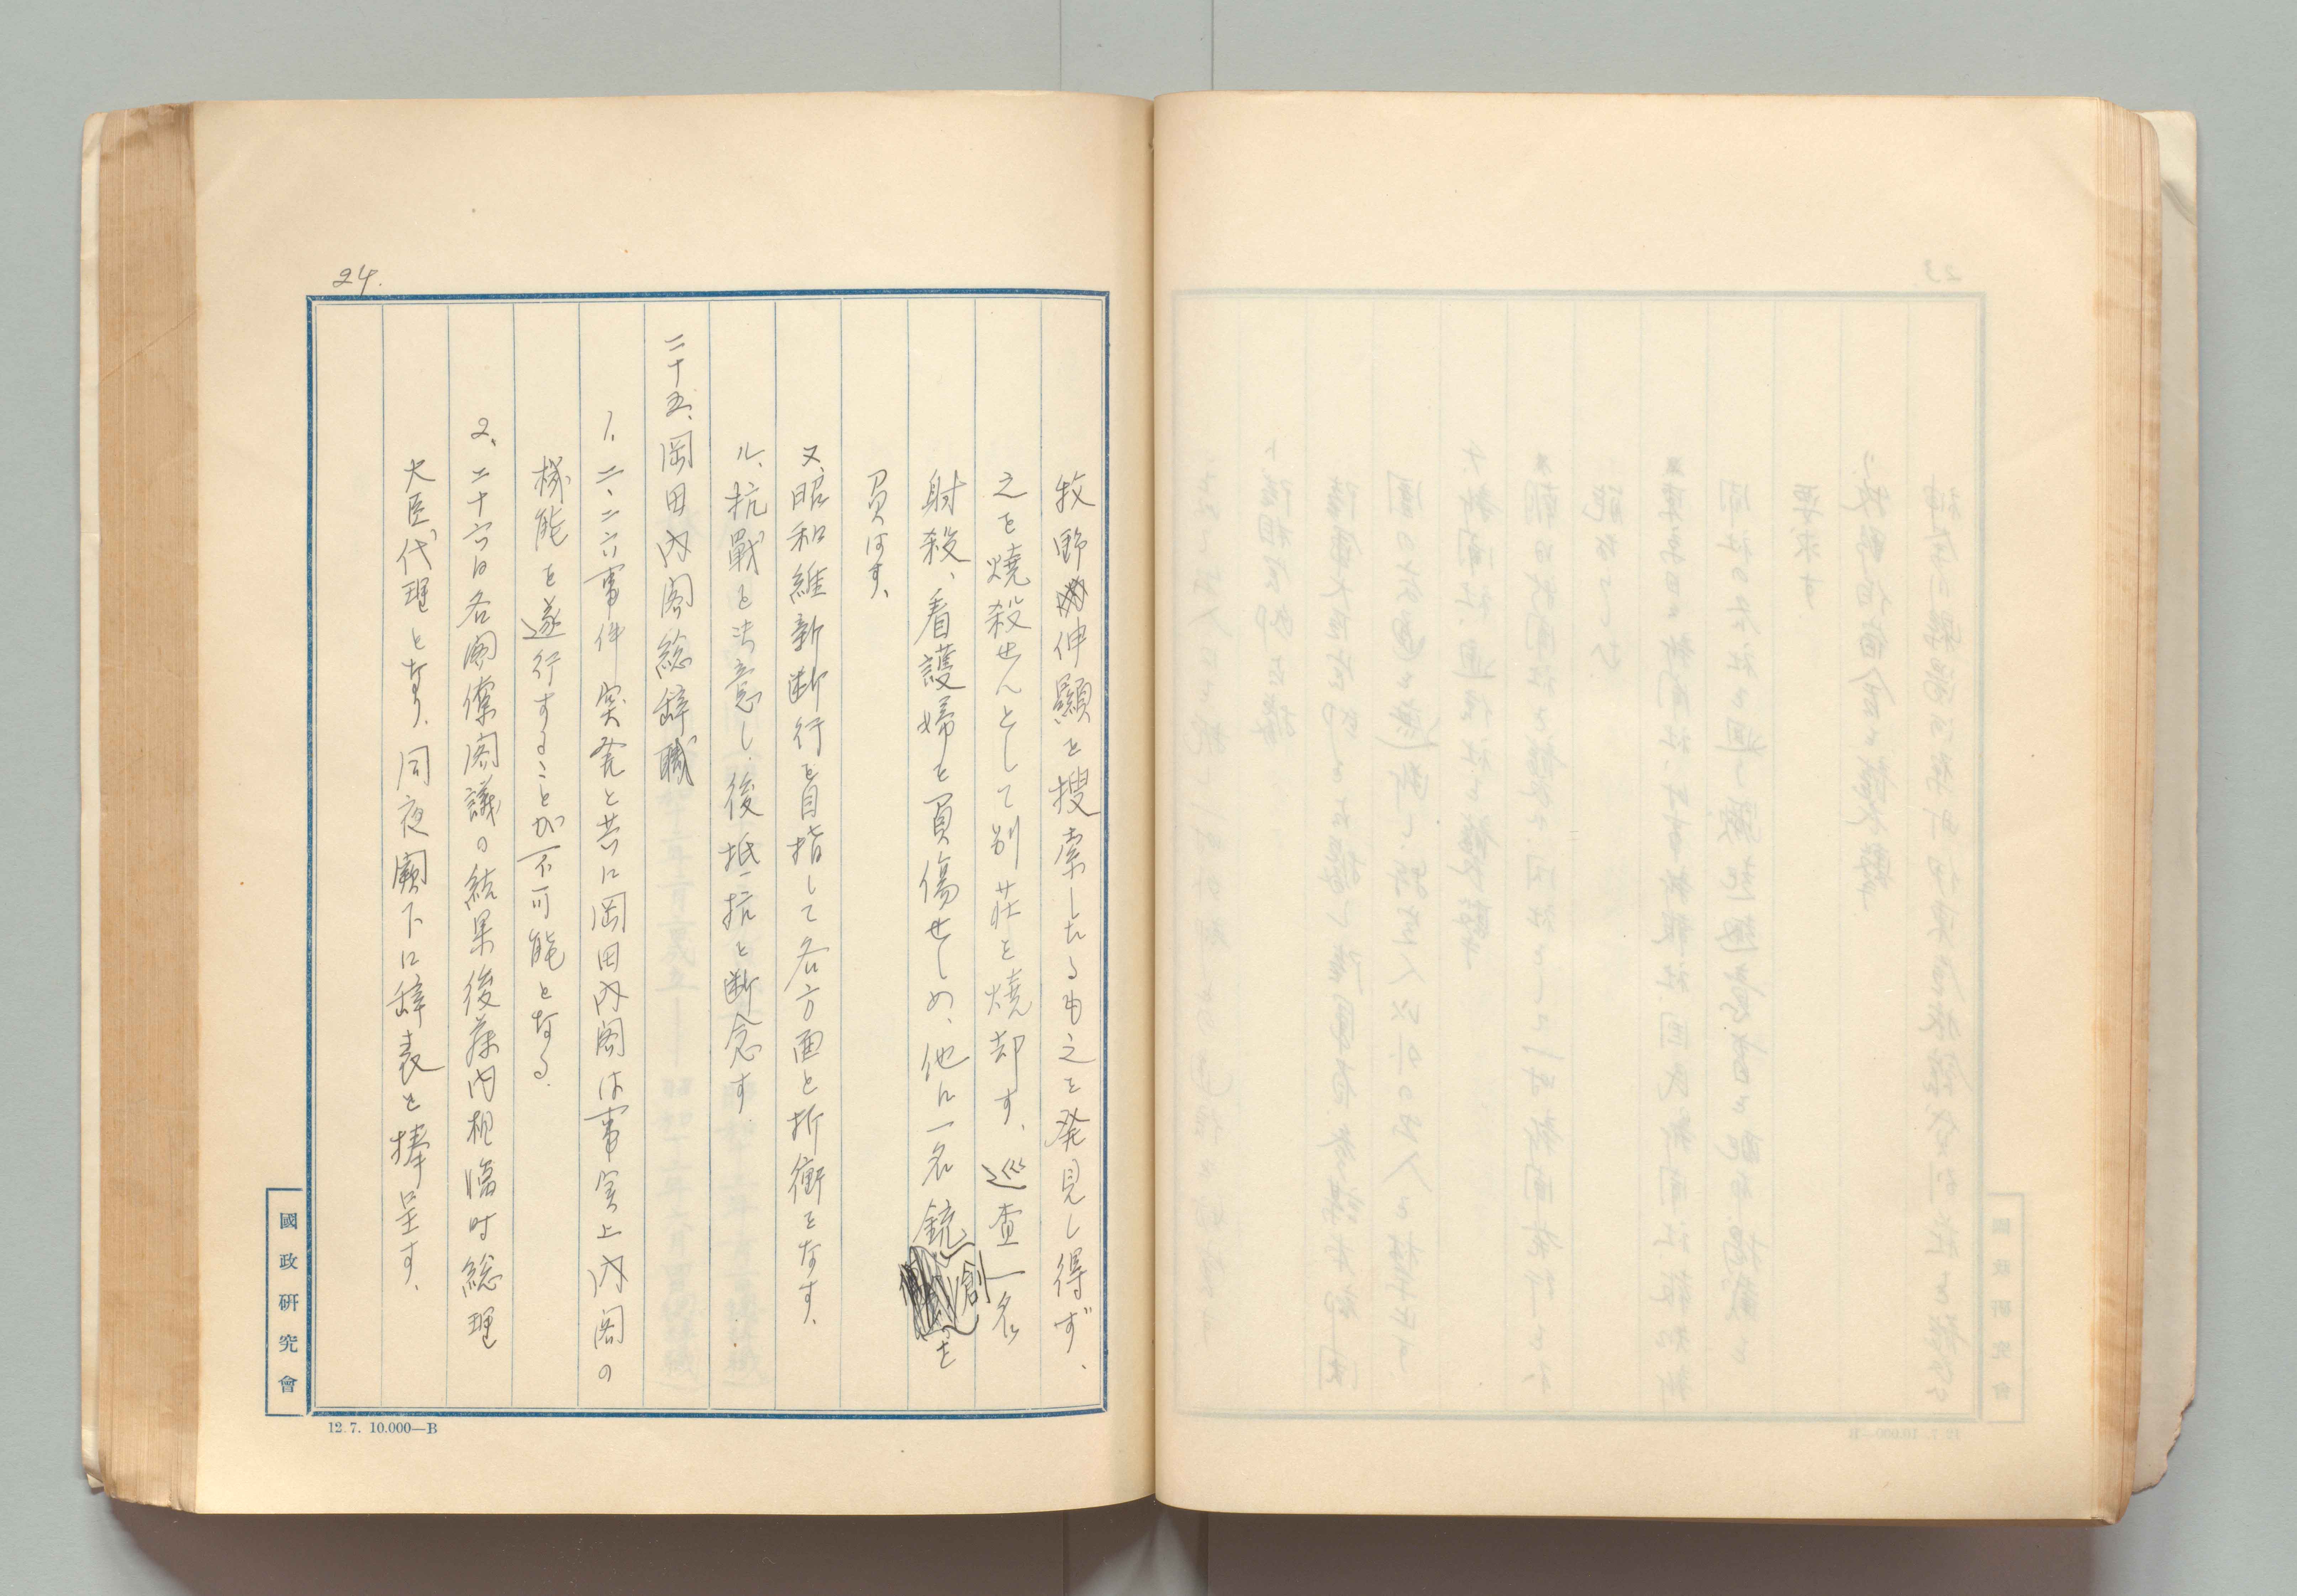 24.
牧野伸顯を捜索したるも之を発見し得ず、
之を燒殺せんとして別莊を燒却す、巡査一名
射殺、看護婦を負傷せしめ、他に一名銃創を
負はす、
ヌ、昭和維新断行を目指して各方面と折衝をなす、
ル、抗戰を決意し、後抵抗を断念す、
二十五、岡田内閣総辞職
1、二、二六事件突発と共に岡田内閣は事実上内閣の
機能を遂行することが不可能となる、
2、二十六日各閣僚閣議の結果後藤内相臨時総理
大臣代理となり、同夜闕下に辞表を捧呈す、
國政研究會
12.7. 10.000—B